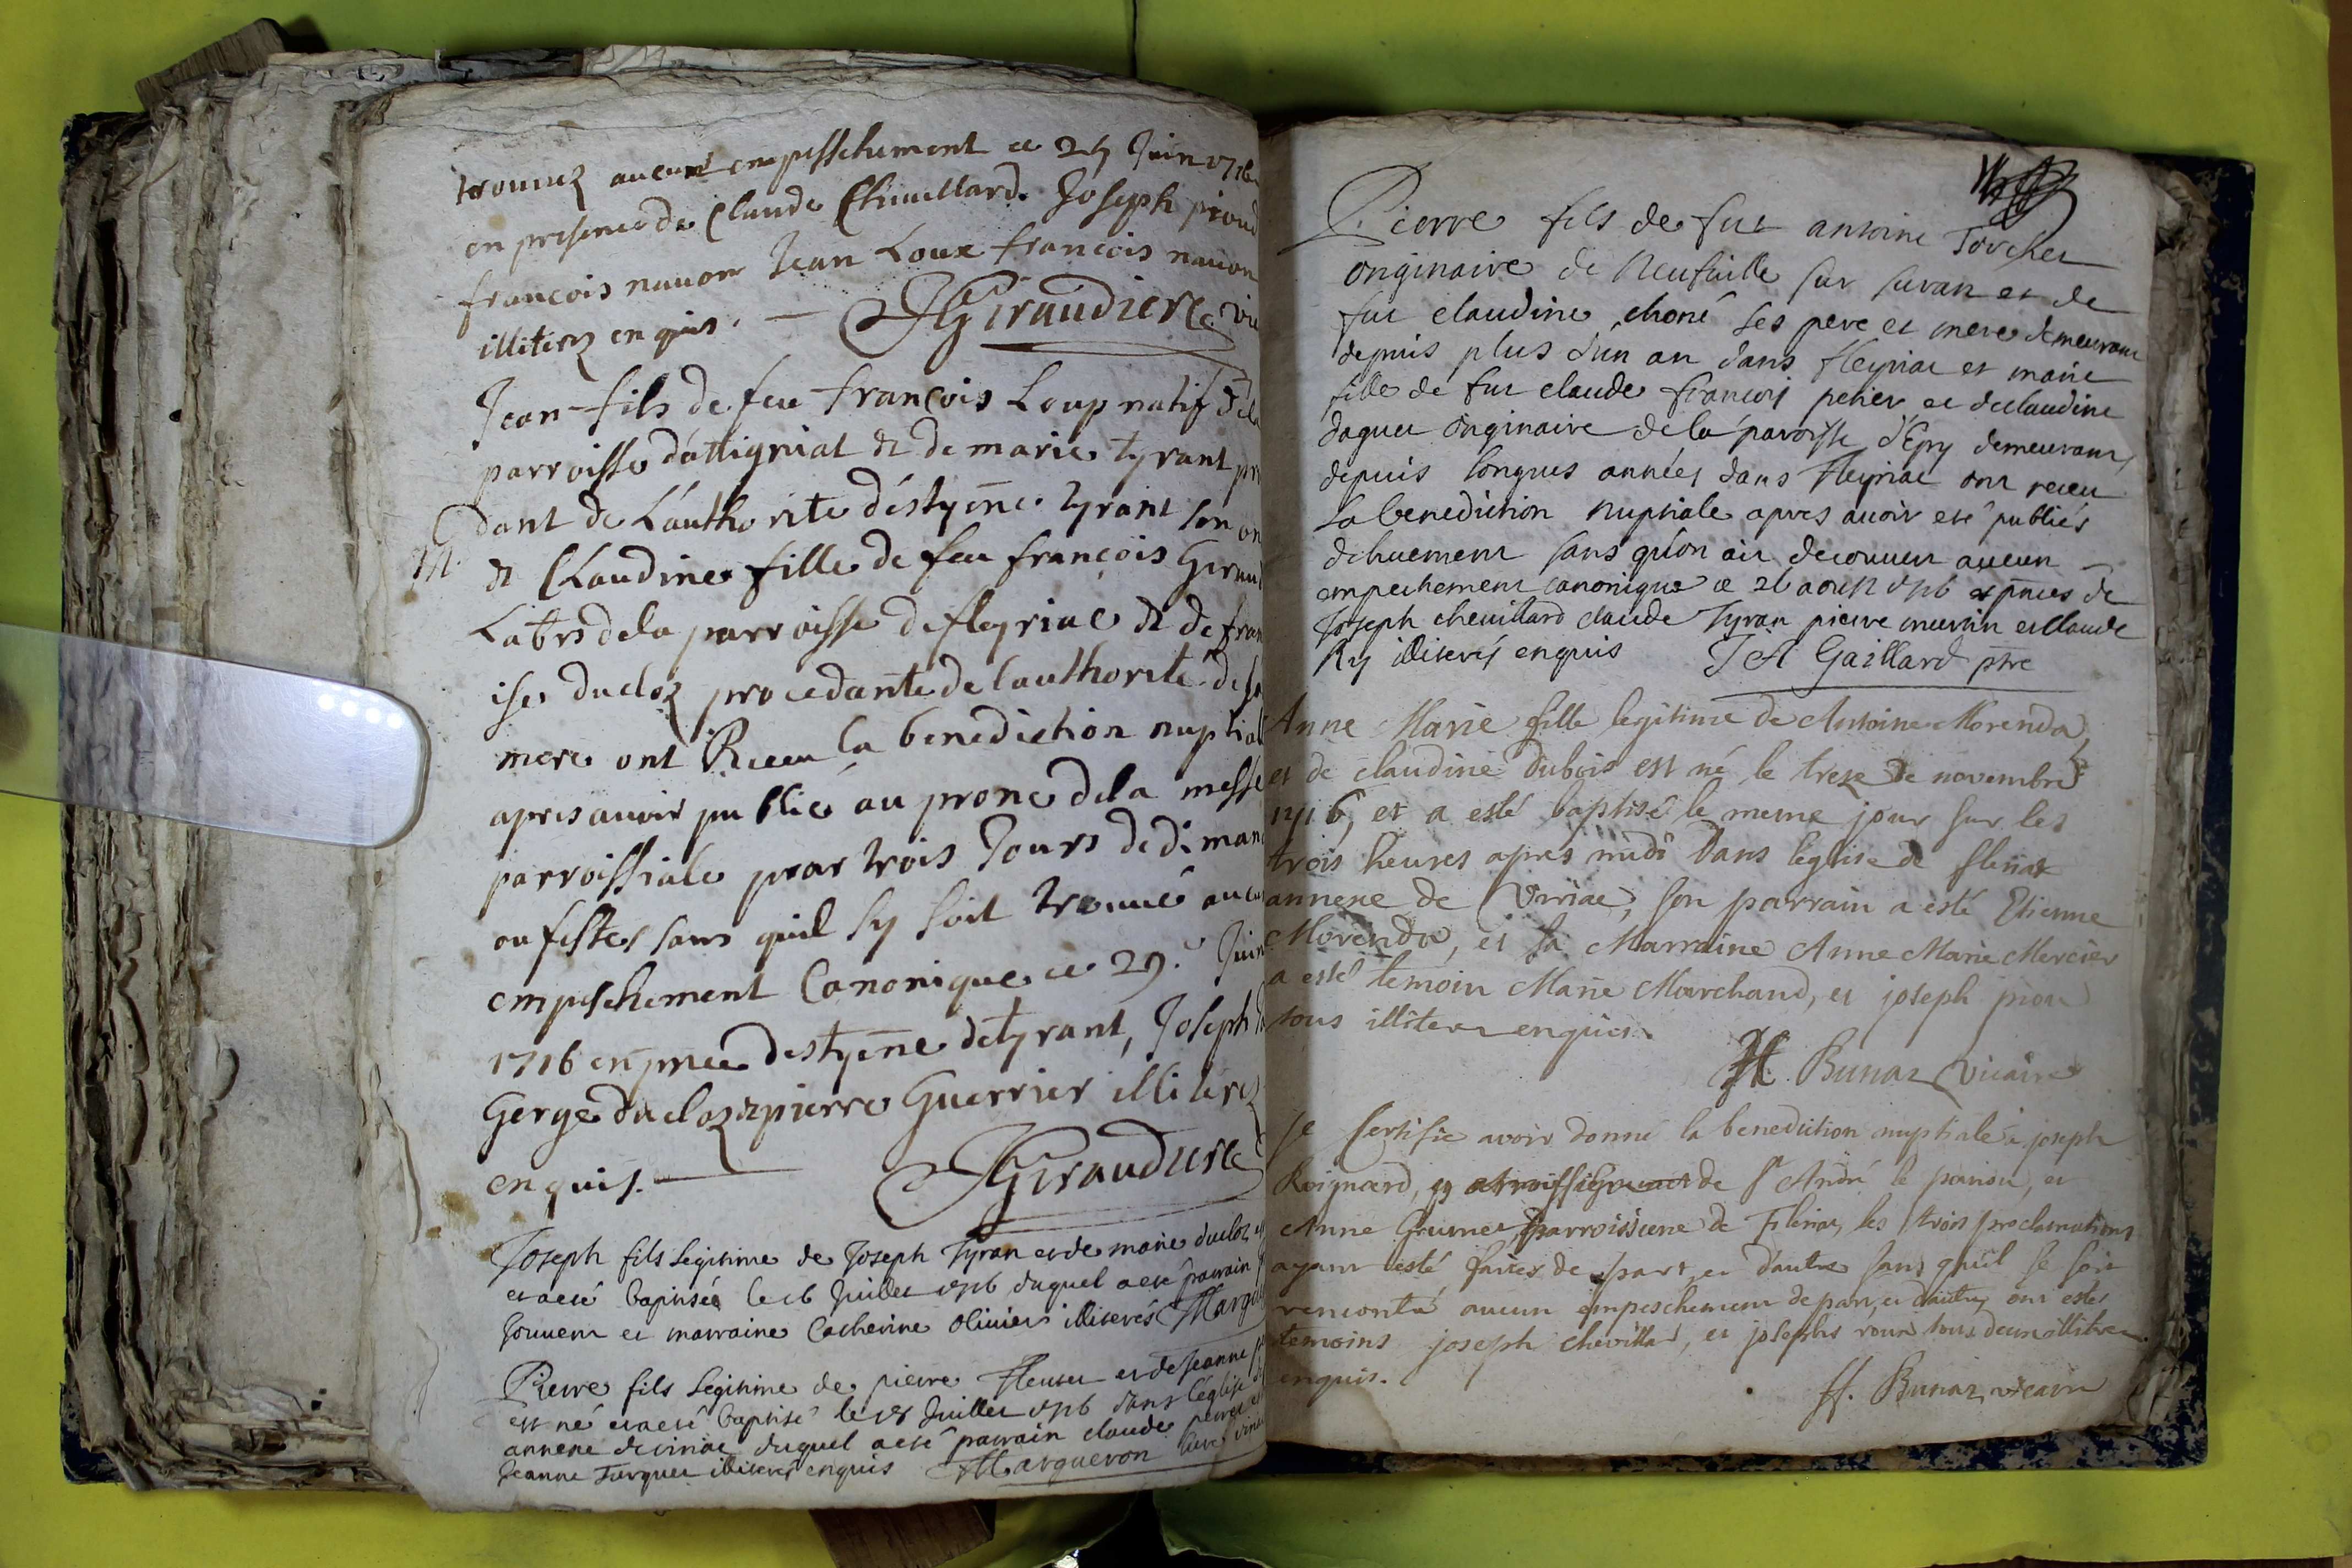 trouuez aucun empesschement ce 24 Juin 1716
en presence de Claude Chiuellard. Joseph pioud
francois nauon Jean Loux francois nauon
illiterz enquis. — JGiraudiere Vic
Jean fils de feu francois Loup natif de la
parroisse d'attigniat & de marie tyrant pro
dant de L'authorite d'éstyene tyrant son on
M. & Claudine fille de feu françois Giraud
de la parroisse de fleyriac & de fran
ises ducloz procedante de lauthorité de sa
mere ont Receu la benediction nuptial
apres auoir publié au prone dela messe
parroissiale par trois Jours de diman
ou festes sans quil sy soit trouué aucu
empeschement Canonique ce 29. Juin
1716 en pnce destyene detyrant, Joseph
Gerge ducloz & pierre Guerrier illiterez
enquis. — JGiraudiere
Joseph fils legitime de Joseph Tyran et de marie ducloz
et a eté baptisée le 16 Juillet 1716 duquel a eté parrain
Jouuent et marraine Catherine Oliuier illiterés Marg
Pierre fils legitime de pierre et de Jeanne
est né et a eté baptisé le 18 Juillet 1716 dans l'église
annexe de viriac duquel a eté parrain claude
Jeanne Turquet illiterés enquis Margueron
Pierre fils de fut antoine Torchet
originaire de Neufuille sur suran et de
fut claudine choné ses pere et mere demeurant
depuis plus d'un an dans fleyriac et marie
fille de fut claude francois petier et de claudine
daguet originaire de la paroisse d'Epy demeurant
depuis longues années dans fleyriac ont receu
la benediction nuptiale apres auoir eté publiés
dehuement sans qu'on ait decouuert aucun
empechement canonique ce 26 aoust 1716 es pnces de
Joseph cheuillard claude Tyran pierre et claude
Ry illiterés enquis J A Gaillard ptre
Anne Marie fille legitime de Antoine Morenda
et de claudine dubois est né le treze de novembre
1716, et a esté baptisé le meme jour sur les
trois heures apres midi dans leglise de fleriat
annexe de Viriac, son parrain a esté Etienne
Morenda, et sa Marraine Anne Marie Mercier
a esté temoin Marie Marchand, et joseph piou
tous illiterez enquis.
H. Bunaz vicaire
Je Certifie avoir donné la benediction nuptiale à joseph
Roignard, de St André le panou, et
Anne Grumet, parroissiene de Fleriat, les trois proclamations
ayant esté faites de part et dautre sans quil se soit
rencontré aucun empeschement de part et dautre, ont estes
temoins joseph chevillard, et josephs tous deux illiterez
enquis.
H. Bunaz vicaire